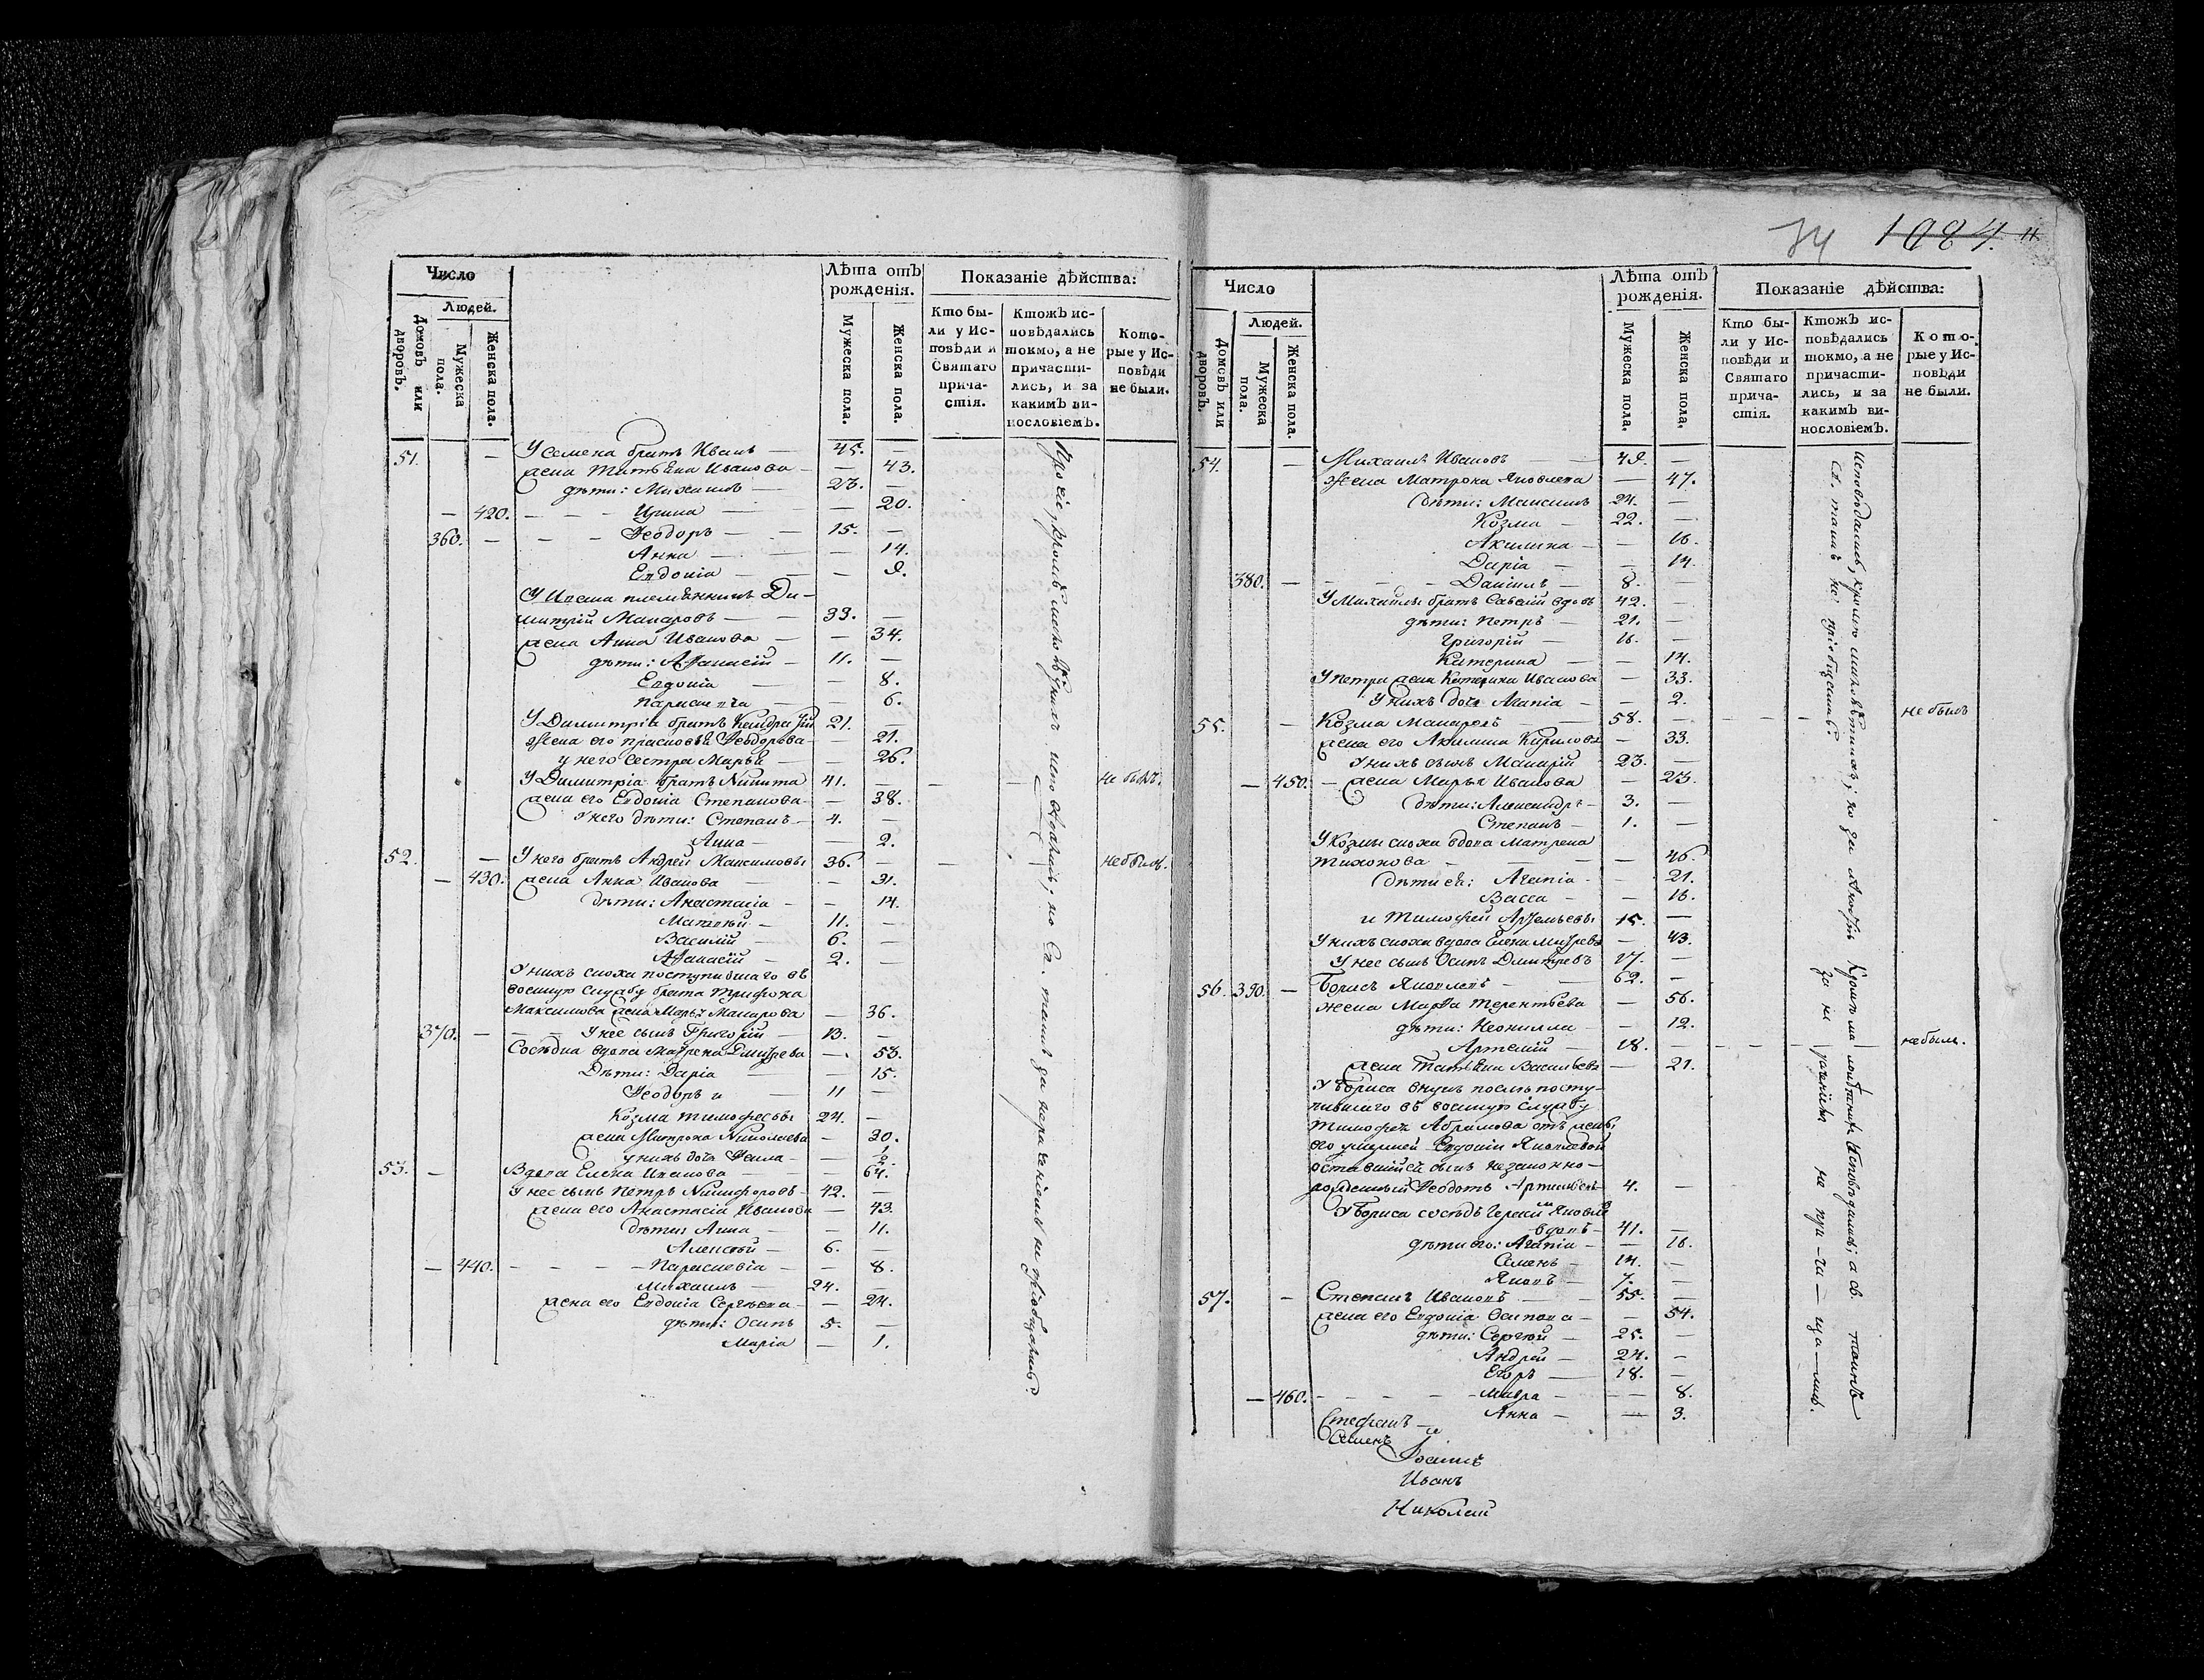 Число
Людей.
Домовъ или дворовъ.
Мужеска пола.
Женска пола.
Лѣта отъ рожденія.
Мужеска пола.
Женска пола.
Показаніе дѣйства:
Кто бы-
ли у Ис-
повѣди и
Святаго
прича-
стія.
Ктожъ ис-
повѣдались
токмо, а не
причасти-
лись, и за
какимъ ви-
нословіемъ.
Кото-
рые у Ис-
повѣди
не были.
51. — У Семена братъ Иванъ — 45. —
жена Татьяна Иванова — — 43.
дѣти: Михаилъ — 23. —
— 420. — — — Ирина — — 20.
360. — — — Ѳеодоръ — — 15. —
Анна — — — 14.
Евдокія — — — 9.
У Ивана племянникъ Ди-
митрій Макаровъ — — 33. —
жена Анна Иванова — — 34.
дѣти: Аѳанасій — 11. —
Евдокія — — 8.
Параскевіа — — 6.
У Димитріа братъ Кондратій 21. —
жена его Прасковья Ѳеодорова — 21.
у него сестра Марья — — 26.
У Димитріа братъ Никита 41. — — — не былъ.
жена его Евдокіа Степанова — — 38.
У него дѣти: Степанъ — 4. —
Анна — — 2.
52. — У него братъ Андрей Максимовъ 36. — — — не былъ.
— 430. жена Анна Иванова — — 31.
дѣти: Анастасіа — — 14.
Матвѣй — 11. —
Василій — 6. —
Аѳанасій — 2. —
У нихъ сноха поступившаго въ
военную службу брата Трифона
Максимова жена Марья Макарова — 36.
370. — — — У нее сынъ Григорій — 13. —
Сосѣдка вдова Матрена Дмитрева — 53.
Дѣти: Даріа — — 15.
Ѳеодоръ и — 11 —
Козма Тимофеевы 24. —
жена Матрона Николаева — 30.
у нихъ дочь Ѳекла — —
53. — Вдова Елена Иванова — 64.
У нее сынъ Петръ Никифоровъ — 42. —
жена его Анастасіа Иванова — 43.
дѣти: Анна — — 11.
Алексѣй — 6. —
— 440. — — — Параскевіа — — 8.
Михаилъ — 24.
жена его Евдокіа Сергѣева — — 24.
дѣти: Осипъ 5. —
Маріа — 1.
Прочіе, кромѣ малолѣтнихъ исповѣдались, но Св. таинъ за нераченіемъ не пріобщались
34 1084. 11
Число
Людей.
Домовъ или дворовъ.
Мужеска пола.
Женска пола.
Лѣта отъ рожденія.
Мужеска пола.
Женска пола.
Показаніе дѣйства:
Кто бы-
ли у Ис-
повѣди и
Святаго
прича-
стія.
Ктожъ ис-
повѣдались
токмо, а не
причасти-
лись, и за
какимъ ви-
нословіемъ.
Кото-
рые у Ис-
повѣди
не были.
54. — Михаилъ Ивановъ — 49. —
Жена Матрона Яковлева — 47.
Дѣти: Максимъ 24. —
Козма — 22. —
Акилина — — 16.
Даріа — — 14.
380. — — — — Даніилъ — 8. —
У Михаилы братъ Савелій вдовъ 42. —
дѣти: Петръ — 21. —
Григорій — 16. —
Катерина — — 14.
У Петра жена Катерина Иванова — 33.
У нихъ дочь Агапіа — — 2.
55. — Козма Макаровъ — 58. — — — — не былъ
жена его Акилина Кирилова — 33.
У нихъ сынъ Макарій — 23. —
— 450. — жена Марья Иванова — 23.
Дѣти: Александръ — 3. —
Степанъ — 1. —
У Козмы сноха вдова Матрена
Тихонова — — — — 46.
Дѣти ея: Агапіа — — 21.
Васса — — 16.
и Тимофей Артемьевы 15. —
У нихъ сноха вдова Елена — 43.
У нее сынъ Осипъ Дмитревъ 17. —
56. 390. — Борисъ Яковлевъ — — 62. —
жена Марѳа Терентьева — 56.
дѣти: Неонилла — — 12.
Артемій — 18. — — — — не былъ.
жена Татьяна Васильева — 21.
У Бориса внукъ послѣ посту-
пившаго въ военную службу
Тимофея Абрамова отъ жены
его умершей Евдокіи Яковлевой
оставшійся сынъ незаконно-
рожденный Ѳеодотъ 4. —
У Бориса сосѣдъ
вдовъ — 41. —
дѣти его: Агапіа — — 16.
Семенъ — 14. —
Яковъ — 7. —
57. — Степанъ Ивановъ — — 55. —
жена его Евдокіа Осипова — — 54.
дѣти: Сергѣй — 25. —
Андрей — 24. —
Егоръ — 18. —
— 460. — — — — Мавра — — — 8.
Анна — — 3.
Исповѣдались, кромѣ малолѣтныхъ; но за
Св. таинъ не пріобщались
Стефанъ —
Семенъ
Иванъ
Николай